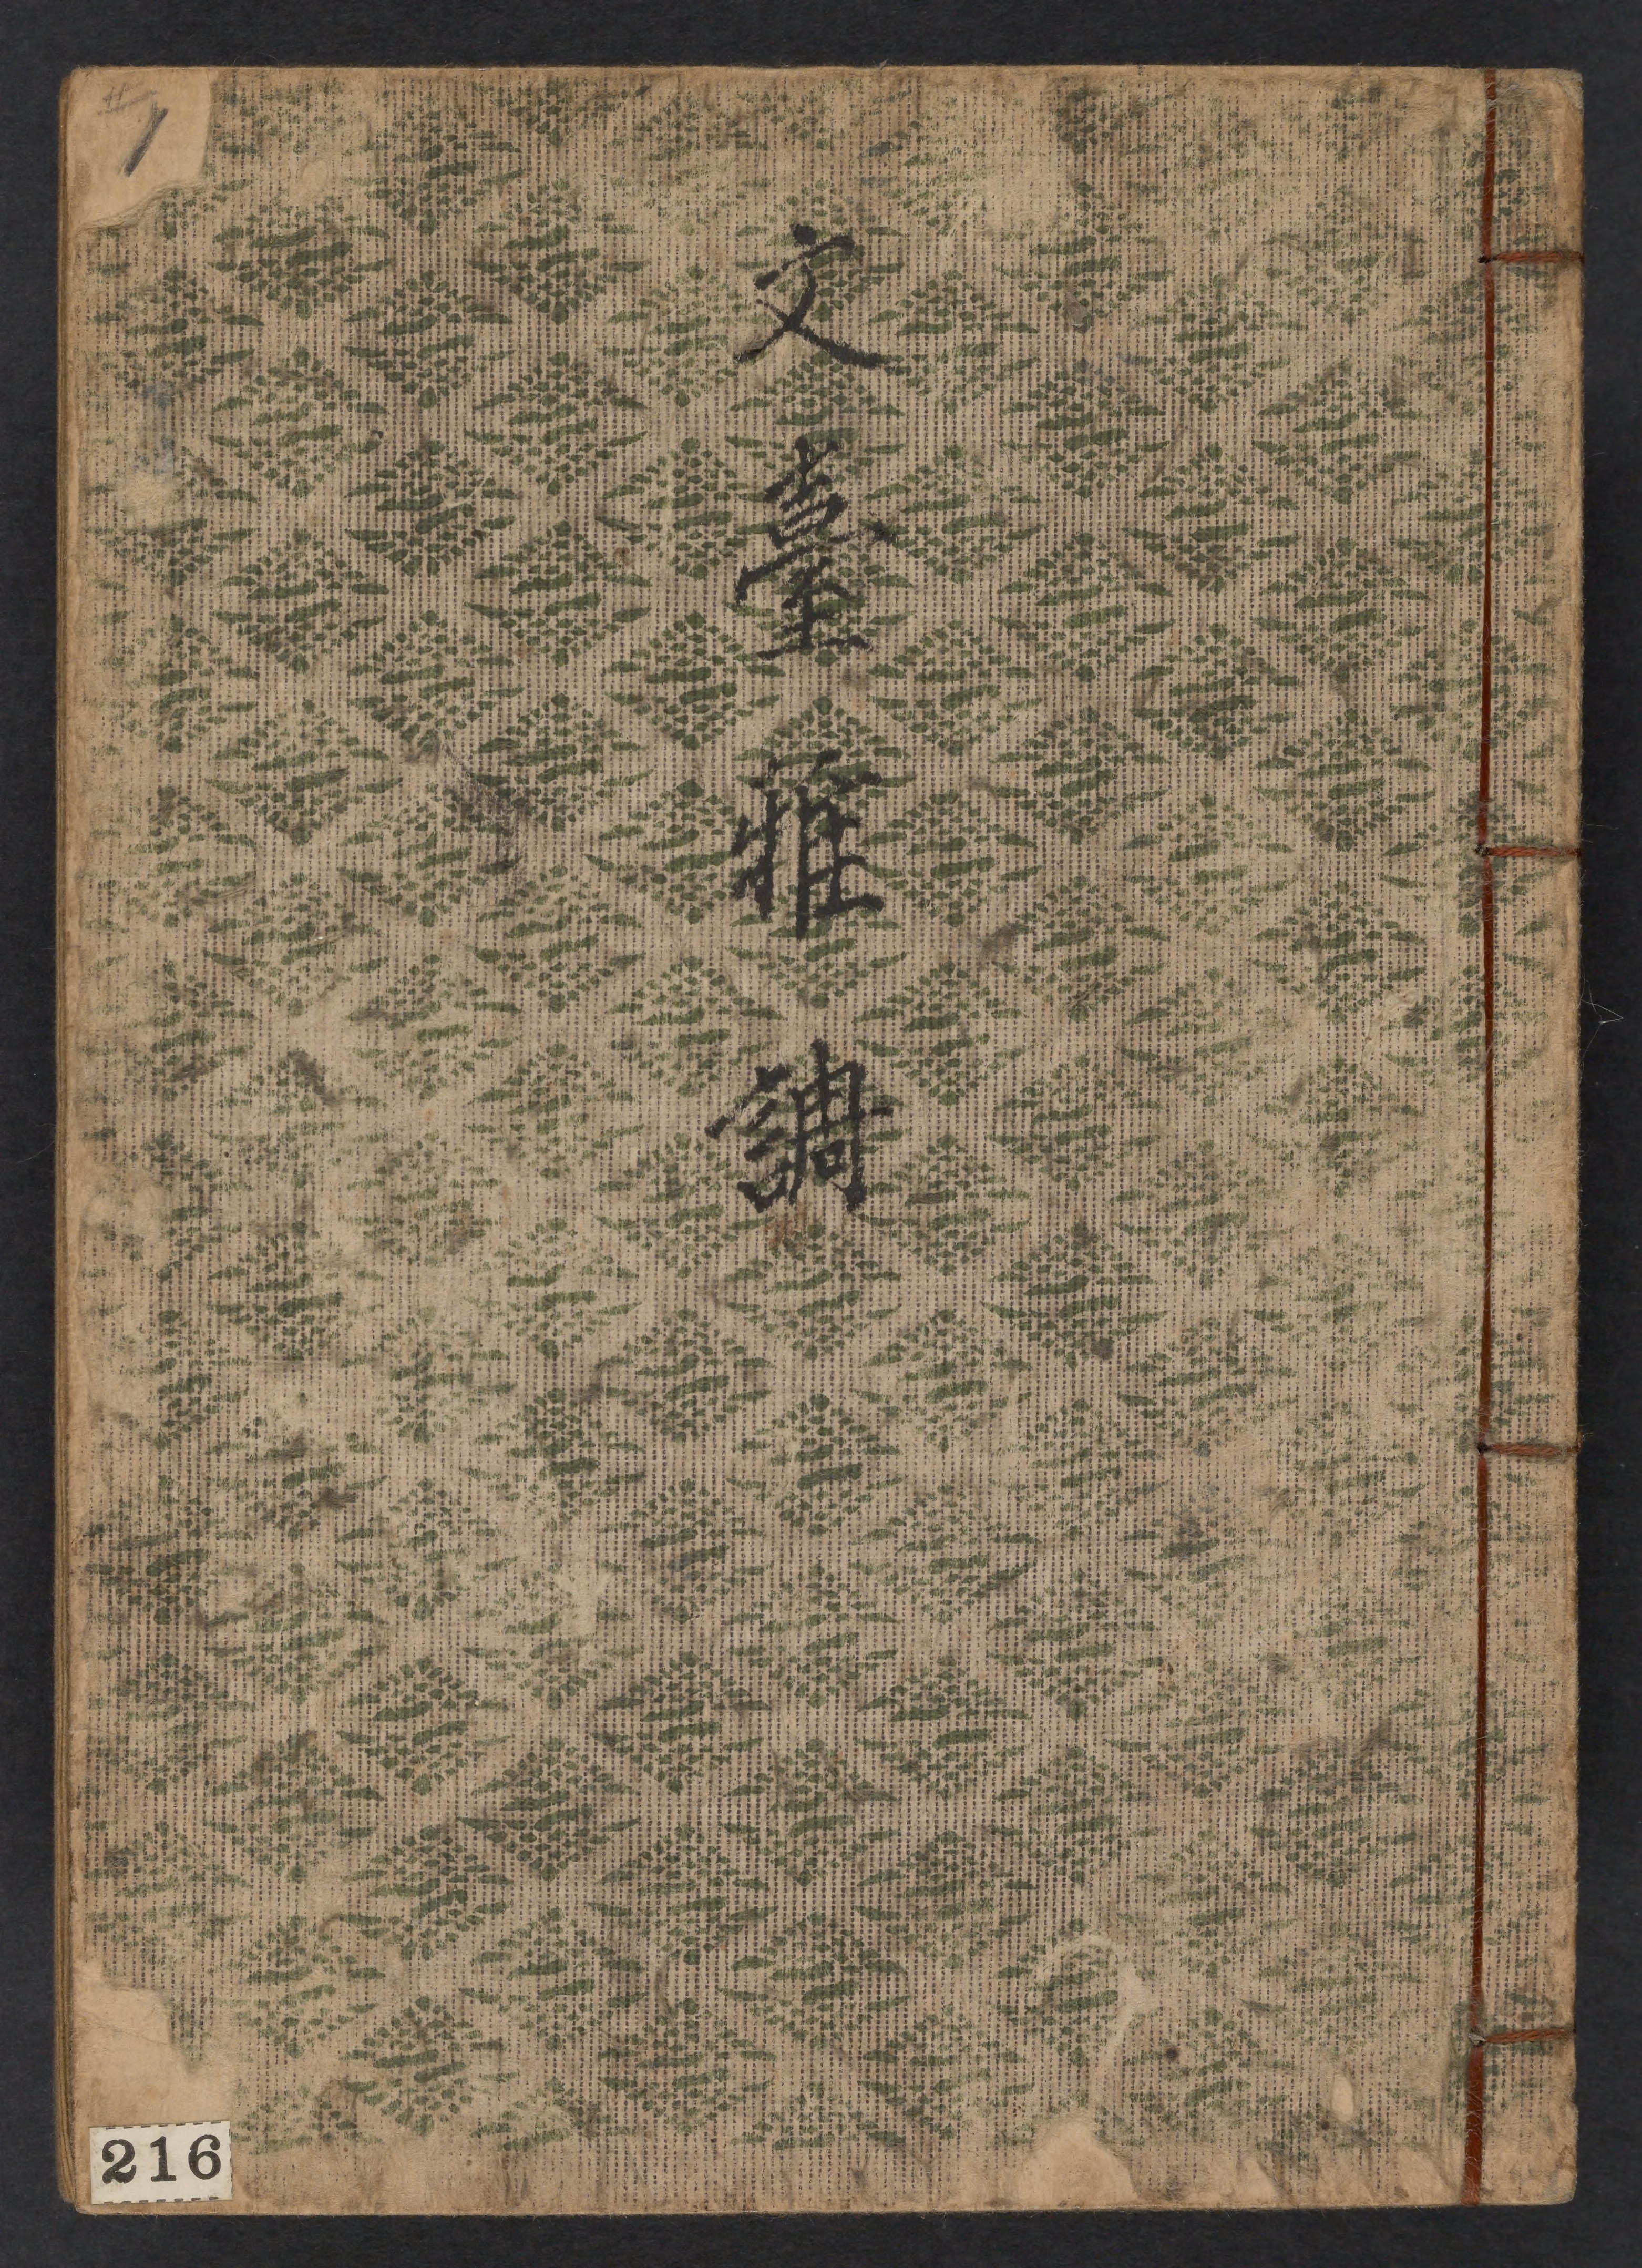 文臺雅調
216